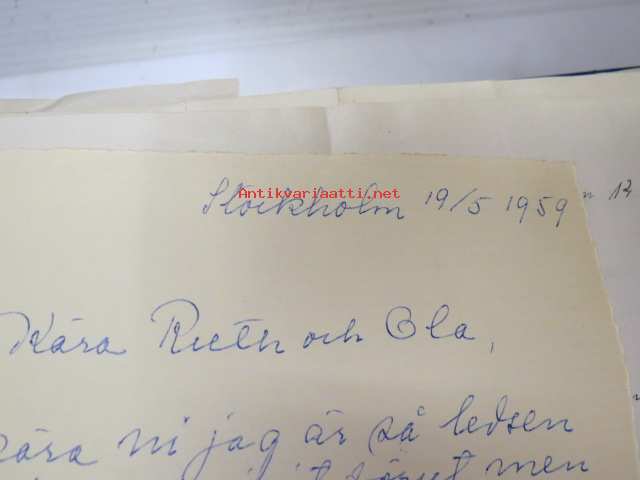 Antikvariaatti.net
Stockholm 19/5 1959
12
Kära Ruth och Ola,
kära ni jag är så ledsen
men